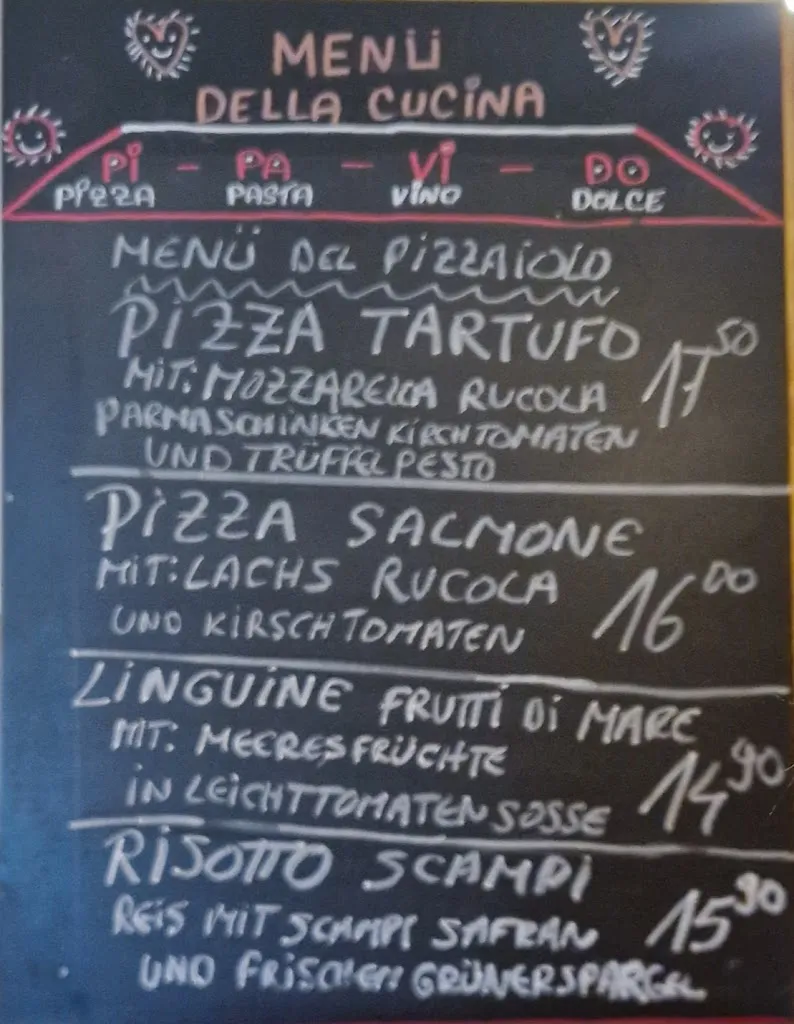 MENÜ
DELLA CUCINA
Pi - PA - Vi - DO
PIZZA PASTA VINO DOLCE
MENÜ DEL PIZZAIOLO
PIZZA TARTUFO 17 50
MIT: MOZZARELLA RUCOLA
PARMASCHINKEN KIRCHTOMATEN
UND TRÜFFELPESTO
PIZZA SALMONE
MIT: LACHS RUCOLA 16 00
UND KIRSCHTOMATEN
LINGUINE FRUTTI Di MARE
MIT: MEERESFRÜCHTE 14 90
IN LEICHTTOMATENSOSSE
RISOTTO SCAMPI
REIS MIT SCAMPI SAFRAN 15 90
UND FRISCHEM GRÜNERSPARGEL